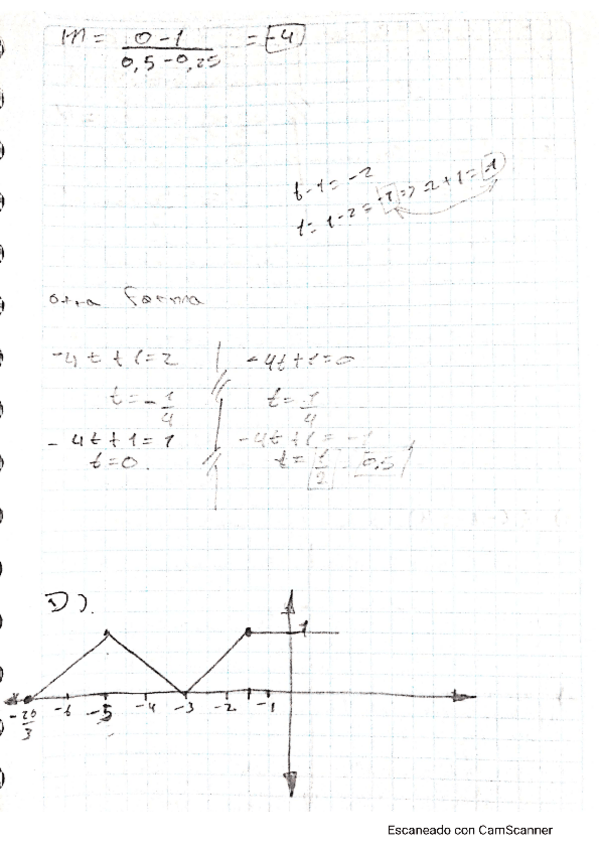 m = 0-1 / 0,5-0,25 = -4
t-1=-2
t=1-2=-1 => 2+1=1
otra forma
-4t+1=2 | -4t+1=0
t=-1/4 t=1/4
-4t+1=1 -4t+1=-1
t=0. t=1/2 0.5
D).
1
-20/3 -6 -5 -4 -3 -2 -1
Escaneado con CamScanner